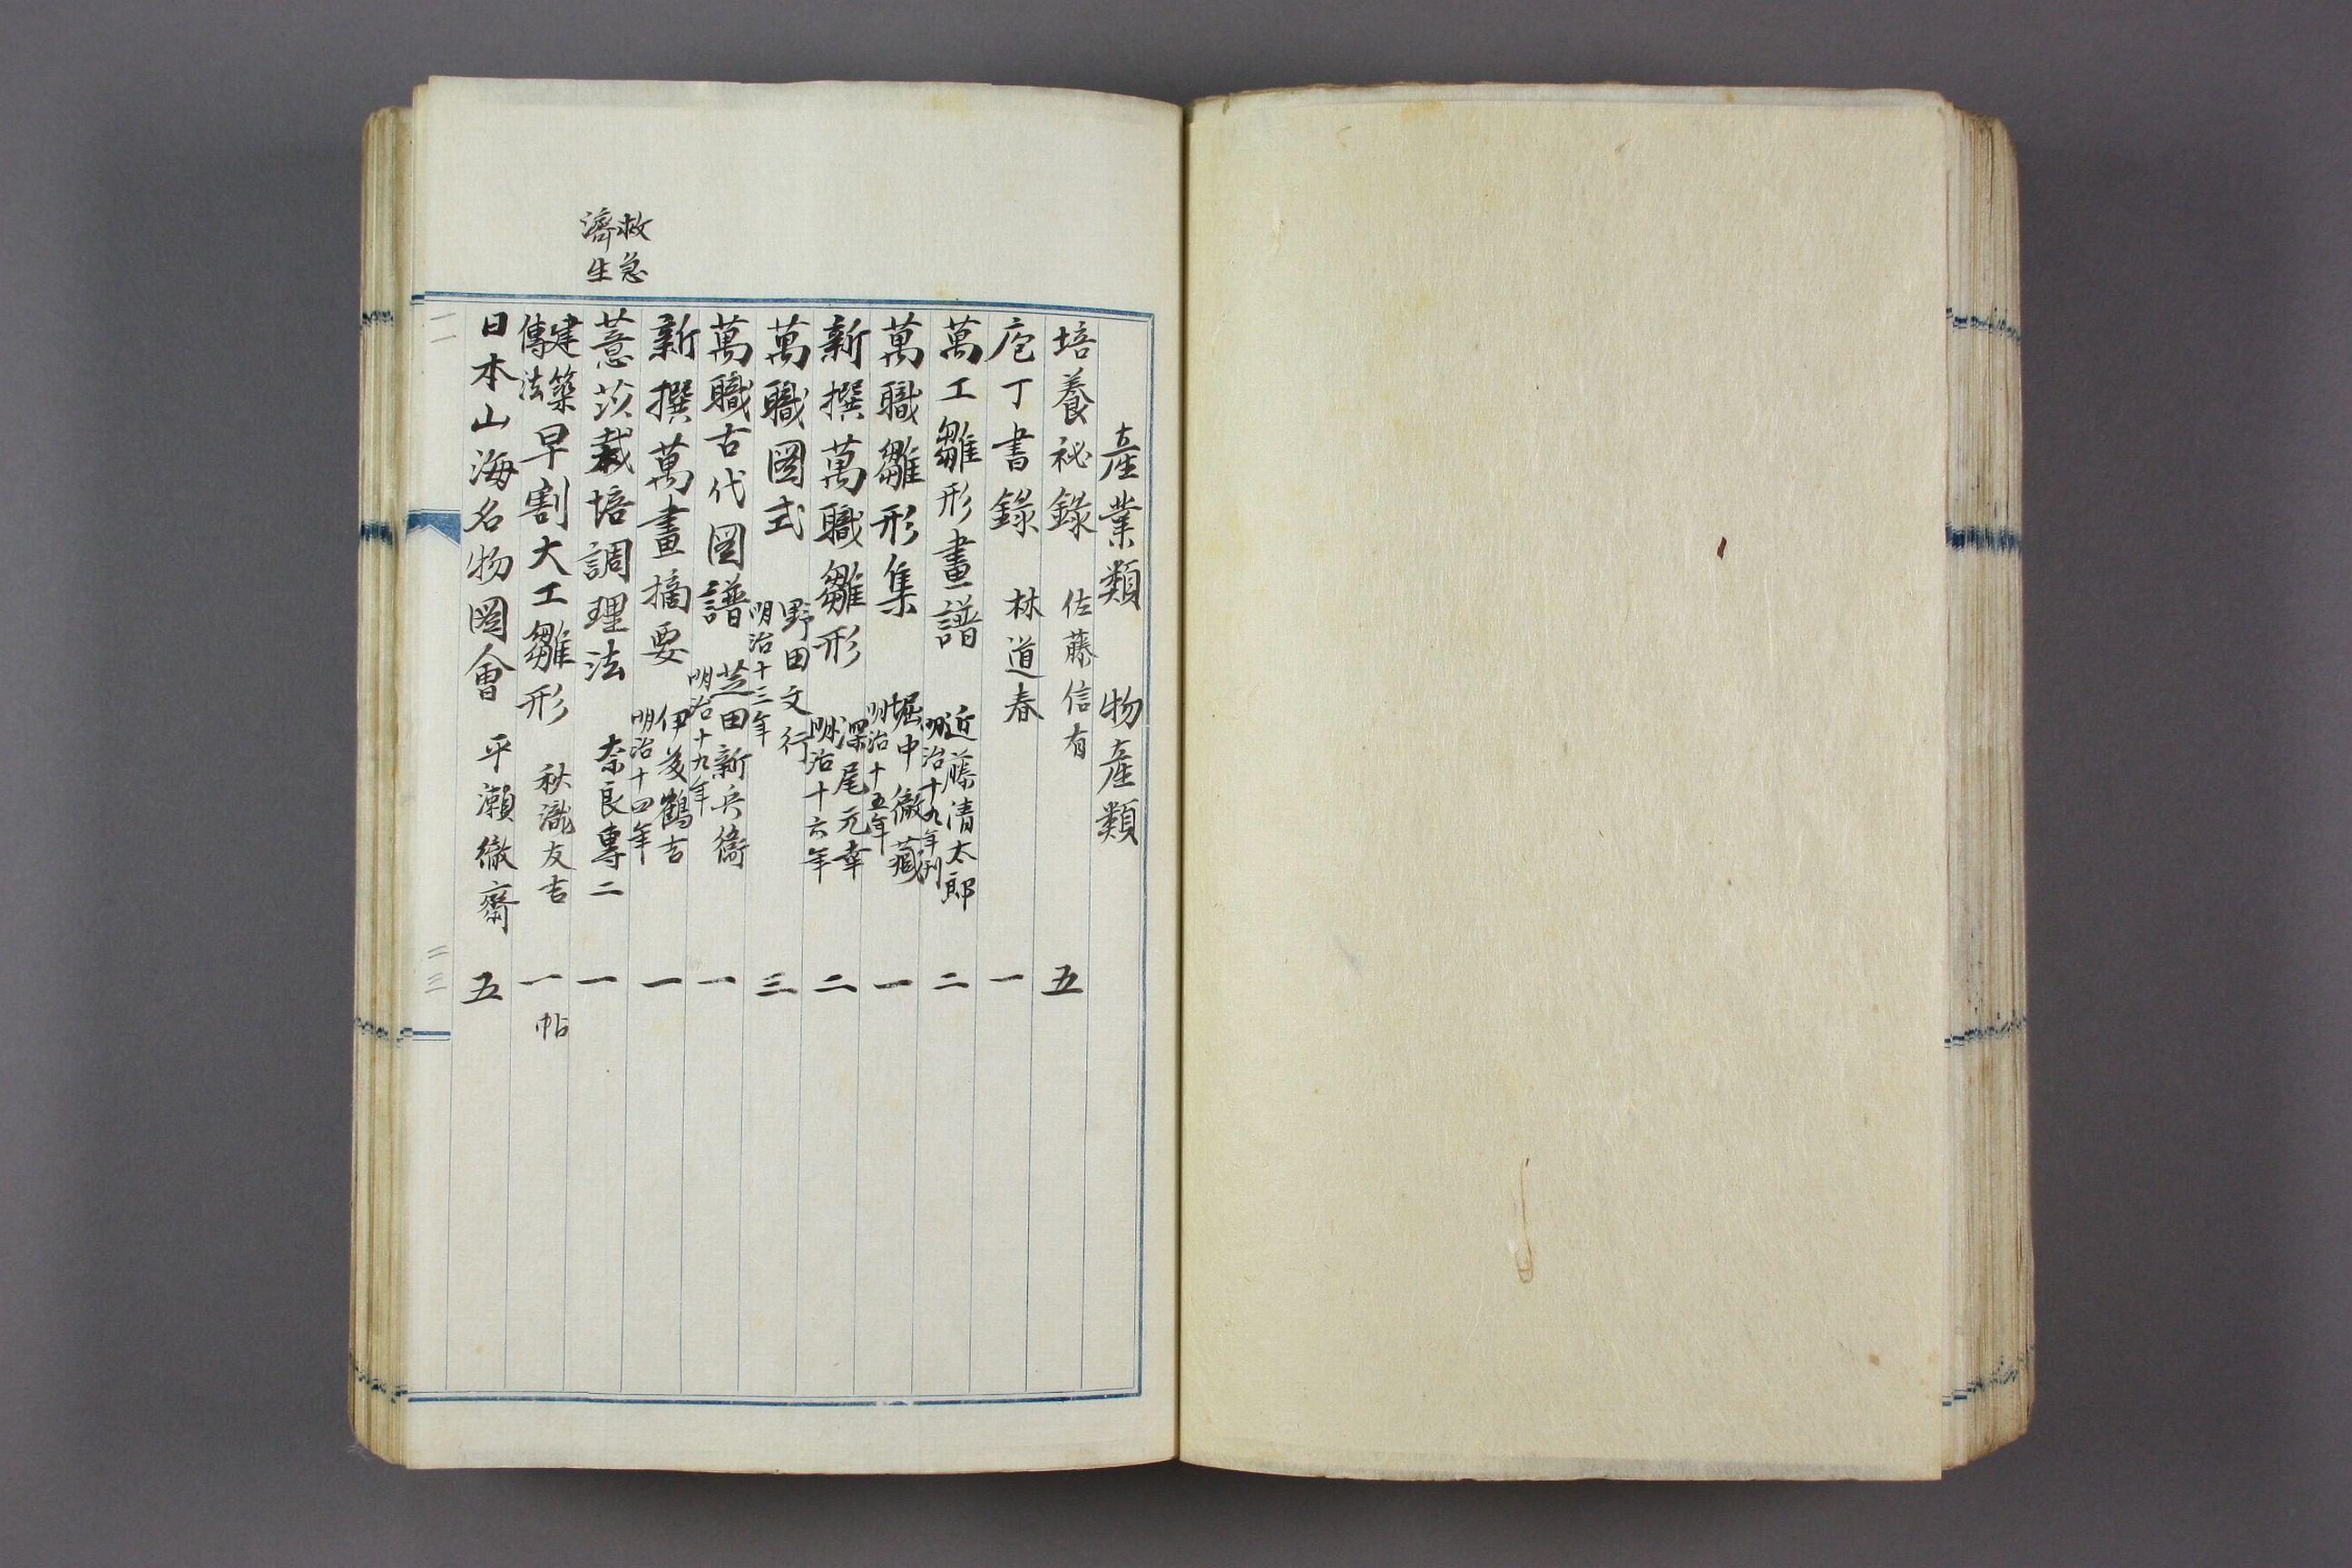 産業類 物産類
培養祕錄 佐藤信有 五
庖丁書錄 林道春 一
萬工雛形畫譜 近藤清太郎 明治十九年刋 二
萬職雛形集 堀中徹藏 明治十五年 一
新撰萬職雛形 深尾元幸 明治十六年 二
萬職圖式 野田文行 明治十三年 三
萬職古代圖譜 芝田新兵衞 明治十九年 一
新撰萬畫摘要 伊葰鶴吉 明治十四年 一
救急
濟生
薏苡栽培調理法 奈良專二 一
建築傳法早割大工雛形 秋瀧友吉 一帖
日本山海名物圖會 平瀨徹齋 五
一一
二三